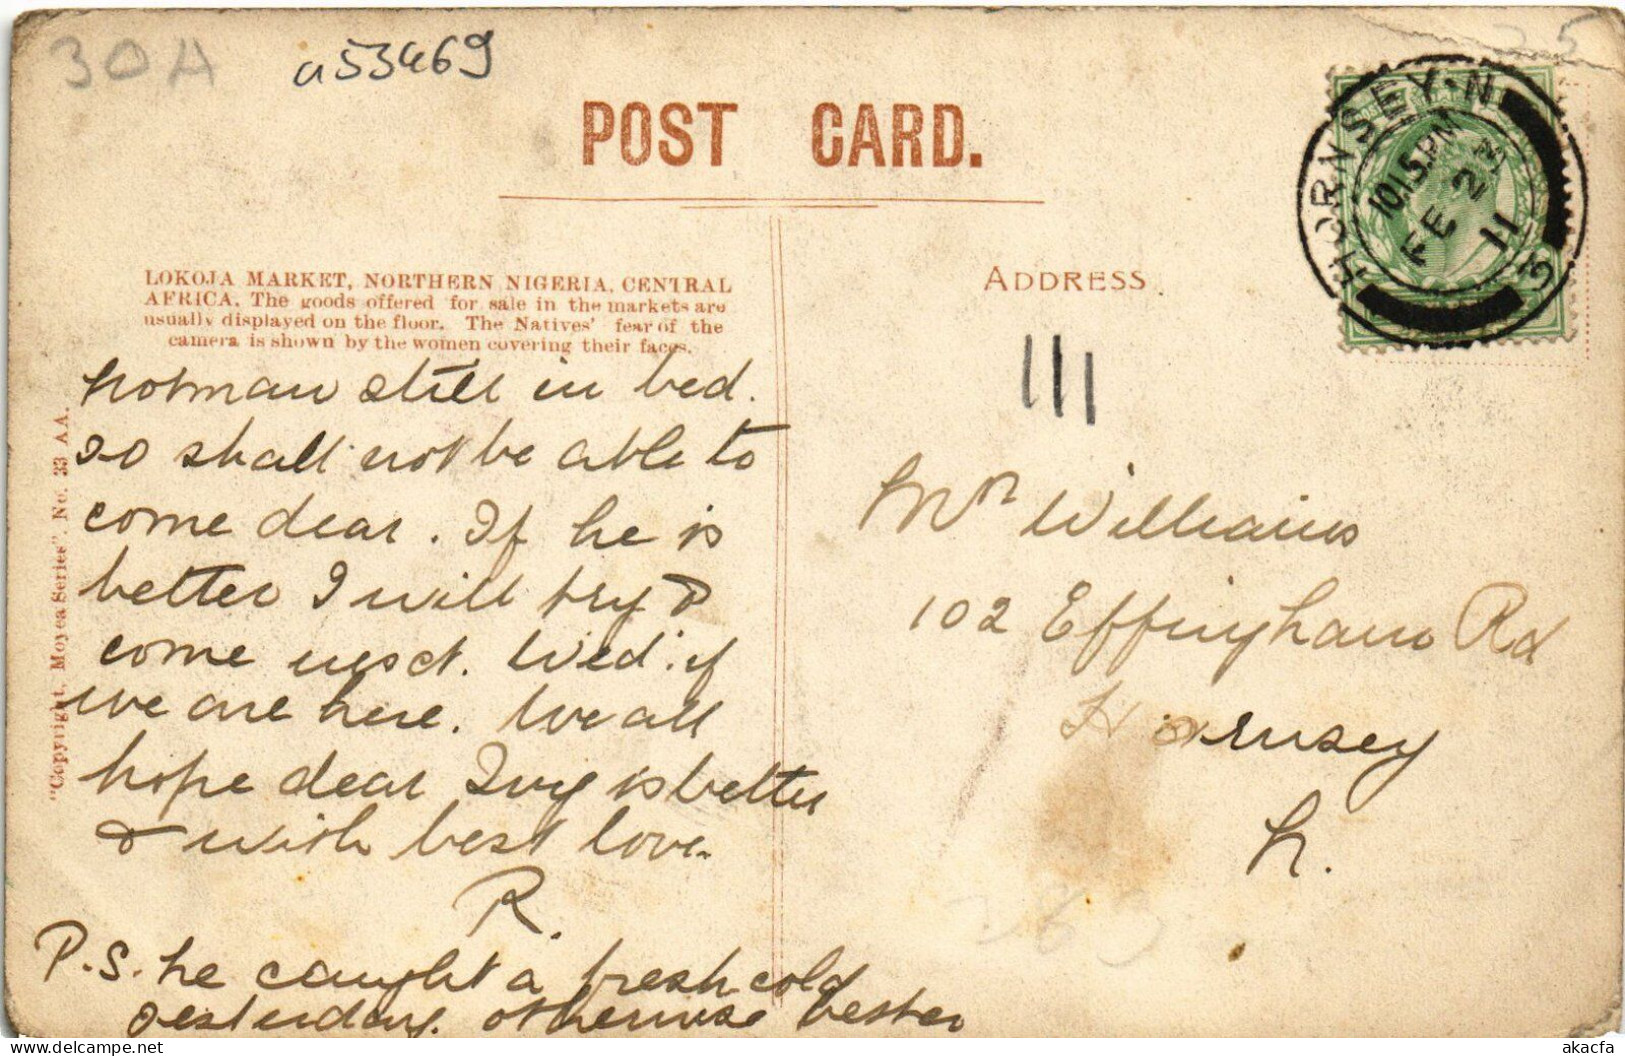 30A
a53469
POST CARD.
HORNSEY·N
10.15PM
FE 23
11
LOKOJA MARKET, NORTHERN NIGERIA, CENTRAL
AFRICA. The goods offered for sale in the markets are
usually displayed on the floor. The Natives' fear of the
camera is shown by the women covering their faces.
"Copyright. Moyea Series". No. 33 AA.
Norman still in bed.
so shall not be able to
come dear. If he is
better I will try &
come next. Wed. if
we are here. We all
hope dear Ivy is better
& with best love.
R.
P.S. he caught a fresh cold
yesterday. otherwise better
ADDRESS
111
Mrs Williams
102 Effingham Rd
Hornsey
N.
akacfa